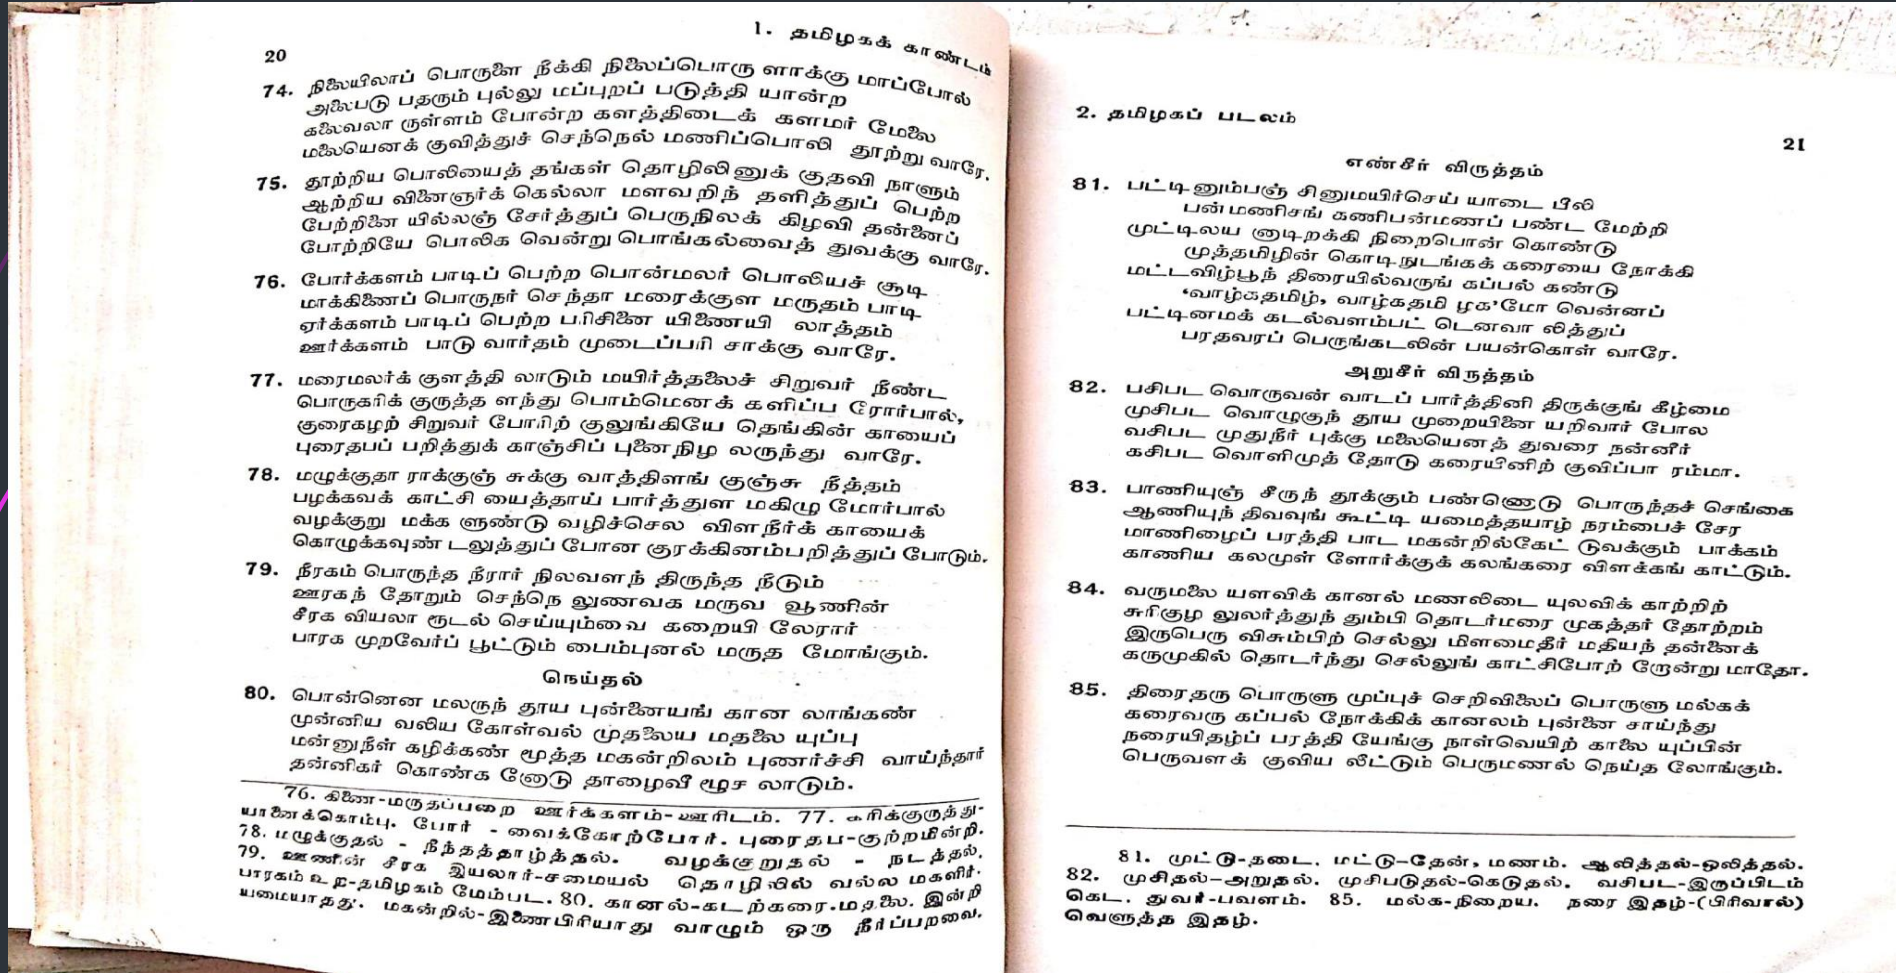 20
1. தமிழகக் காண்டம்
74. நிலையிலாப் பொருளை நீக்கி நிலைப்பொரு ளாக்கு மாப்போல்
அலைபடு பதரும் புல்லு மப்புறப் படுத்தி யான்ற
கலைவலா ருள்ளம் போன்ற களத்திடைக் களமர் மேலை
மலையெனக் குவித்துச் செந்நெல் மணிப்பொலி தூற்று வாரே.
75. தூற்றிய பொலியைத் தங்கள் தொழிலினுக் குதவி நாளும்
ஆற்றிய வினைஞர்க் கெல்லா மளவறிந் தளித்துப் பெற்ற
பேற்றினை யில்லஞ் சேர்த்துப் பெருநிலக் கிழவி தன்னைப்
போற்றியே பொலிக வென்று பொங்கல்வைத் துவக்கு வாரே.
76. போர்க்களம் பாடிப் பெற்ற பொன்மலர் பொலியச் சூடி
மாக்கிணைப் பொருநர் செந்தா மரைக்குள மருதம் பாடி
ஏர்க்களம் பாடிப் பெற்ற பரிசினை யிணையி லாத்தம்
ஊர்க்களம் பாடு வார்தம் முடைப்பரி சாக்கு வாரே.
77. மரைமலர்க் குளத்தி லாடும் மயிர்த்தலைச் சிறுவர் நீண்ட
பொருகரிக் குருத்த ளந்து பொம்மெனக் களிப்ப ரோர்பால்,
குரைகழற் சிறுவர் போரிற் குலுங்கியே தெங்கின் காயைப்
புரைதபப் பறித்துக் காஞ்சிப் புனைநிழ லருந்து வாரே.
78. மழுக்குதா ராக்குஞ் சுக்கு வாத்திளங் குஞ்சு நீத்தம்
பழக்கவக் காட்சி யைத்தாய் பார்த்துள மகிழு மோர்பால்
வழக்குறு மக்க ளுண்டு வழிச்செல விளநீர்க் காயைக்
கொழுக்கவுண் டலுத்துப் போன குரக்கினம்பறித்துப் போடும்.
79. நீரகம் பொருந்த நீரார் நிலவளந் திருந்த நீடும்
ஊரகந் தோறும் செந்நெ லுணவக மருவ வூணின்
சீரக வியலா ரூடல் செய்யும்வை கறையி லேரார்
பாரக முறவேர்ப் பூட்டும் பைம்புனல் மருத மோங்கும்.
நெய்தல்
80. பொன்னென மலருந் தூய புன்னையங் கான லாங்கண்
முன்னிய வலிய கோள்வல் முதலைய மதலை யுப்பு
மன்னுநீள் கழிக்கண் மூத்த மகன்றிலம் புணர்ச்சி வாய்ந்தார்
தன்னிகர் கொண்க னோடு தாழைவீ ழூச லாடும்.
76. கிணை-மருதப்பறை ஊர்க்களம்-ஊரிடம். 77. கரிக்குருத்து-
யானைக்கொம்பு. போர் - வைக்கோற்போர். புரைதப-குற்றமின்றி.
78. மழுக்குதல் - நீந்தத்தாழ்த்தல். வழக்குறுதல் - நடத்தல்.
79. ஊணின் சீரக இயலார்-சமையல் தொழிலில் வல்ல மகளிர்.
பாரகம் உற-தமிழகம் மேம்பட. 80. கானல்-கடற்கரை.மதலை. இன்றி
யமையாதது. மகன்றில்-இணைபிரியாது வாழும் ஒரு நீர்ப்பறவை.
2. தமிழகப் படலம்
21
எண்சீர் விருத்தம்
81. பட்டினும்பஞ் சினுமயிர்செய் யாடை பீலி
பன்மணிசங் கணிபன்மணப் பண்ட மேற்றி
முட்டிலய னாடிறக்கி நிறைபொன் கொண்டு
முத்தமிழின் கொடிநுடங்கக் கரையை நோக்கி
மட்டவிழ்பூந் திரையில்வருங் கப்பல் கண்டு
'வாழ்கதமிழ், வாழ்கதமி ழக'மோ வென்னப்
பட்டினமக் கடல்வளம்பட் டெனவா லித்துப்
பரதவரப் பெருங்கடலின் பயன்கொள் வாரே.
அறுசீர் விருத்தம்
82. பசிபட வொருவன் வாடப் பார்த்தினி திருக்குங் கீழ்மை
முசிபட வொழுகுந் தூய முறையினை யறிவார் போல
வசிபட முதுநீர் புக்கு மலையெனத் துவரை நன்னீர்
கசிபட வொளிமுத் தோடு கரையினிற் குவிப்பா ரம்மா.
83. பாணியுஞ் சீருந் தூக்கும் பண்ணொடு பொருந்தச் செங்கை
ஆணியுந் திவவுங் கூட்டி யமைத்தயாழ் நரம்பைச் சேர
மாணிழைப் பரத்தி பாட மகன்றில்கேட் டுவக்கும் பாக்கம்
காணிய கலமுள் ளோர்க்குக் கலங்கரை விளக்கங் காட்டும்.
84. வருமலை யளவிக் கானல் மணலிடை யுலவிக் காற்றிற்
சுரிகுழ லுலர்த்துந் தும்பி தொடர்மரை முகத்தர் தோற்றம்
இருபெரு விசும்பிற் செல்லு மிளமைதீர் மதியந் தன்னைக்
கருமுகில் தொடர்ந்து செல்லுங் காட்சிபோற் றோன்று மாதோ.
85. திரைதரு பொருளு முப்புச் செறிவிலைப் பொருளு மல்கக்
கரைவரு கப்பல் நோக்கிக் கானலம் புன்னை சாய்ந்து
நரையிதழ்ப் பரத்தி யேங்கு நாள்வெயிற் காலை யுப்பின்
பெருவளக் குவிய லீட்டும் பெருமணல் நெய்த லோங்கும்.
81. முட்டு-தடை. மட்டு-தேன், மணம். ஆலித்தல்-ஒலித்தல்.
82. முசிதல்-அறுதல். முசிபடுதல்-கெடுதல். வசிபட-இருப்பிடம்
கெட. துவர்-பவளம். 85. மல்க-நிறைய. நரை இதழ்-(பிரிவால்)
வெளுத்த இதழ்.